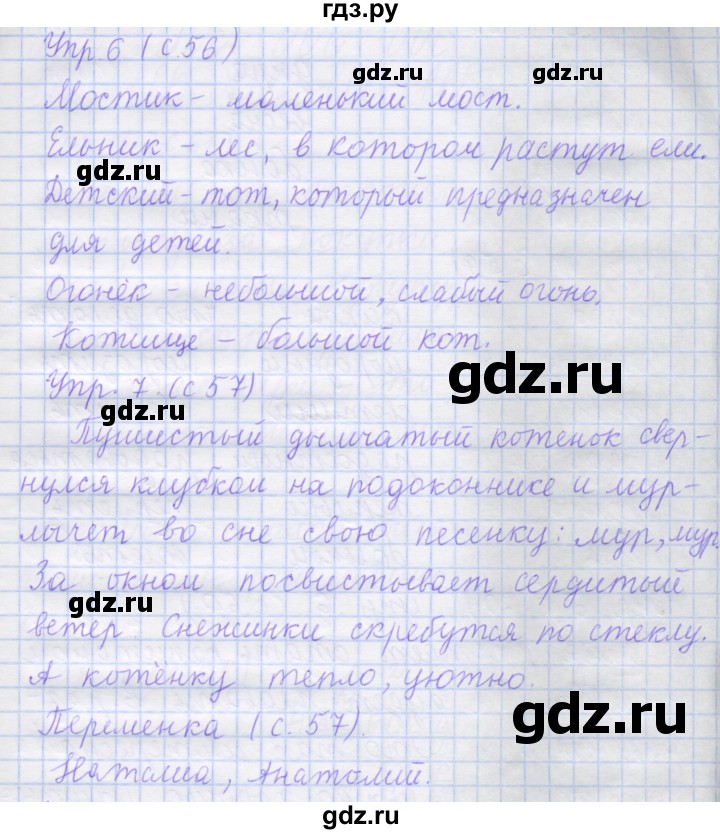 гдз.ру
Упр 6 (с.56)
gdz.ru
gdz.ru
Мостик - маленький мост.
Ельник - лес, в котором растут ели.
gdz.ru
Детский - тот, который предназначен
для детей.
Огонёк - небольшой, слабый огонь.
Котище - большой кот.
gdz.ru
Упр. 7. (с 57)
gdz.ru
Пушистый дымчатый котенок свер-
нулся клубком на подоконнике и мур-
лычет во сне свою песенку: мур, мур
За окном посвистывает сердитый
gdz.ru
ветер. Снежинки скребутся по стеклу.
А котёнку тепло, уютно.
gdz.ru
Переменка (с. 57).
Наталия, Анатолий.
gdz.ru